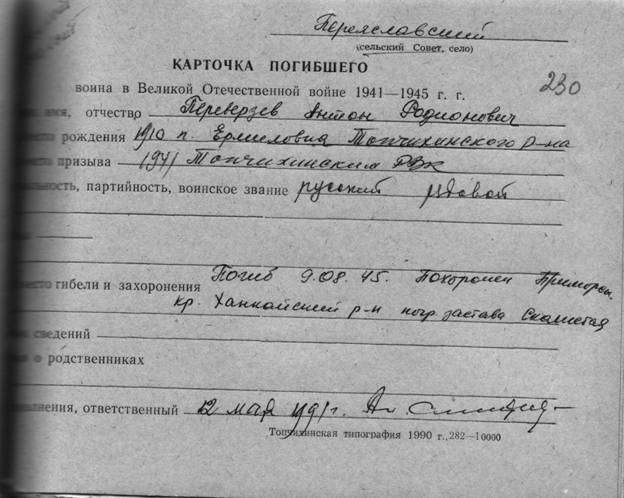 Переяславский
(сельский Совет, село)
КАРТОЧКА ПОГИБШЕГО
воина в Великой Отечественной войне 1941—1945 г. г.
230
имя, отчество Переверзев Антон Родионович
рождения 1910 п. Ермиловка Топчихинского р-на
призыва 1941 Топчихинским РВК
партийность, воинское звание русский рядовой
место гибели и захоронения Погиб 9.08.45. Похоронен Приморск.
кр. Ханкайский р-н погр. застава Скалистая
сведений
о родственниках
ответственный 12 мая 1991г.
Топчихинская типография 1990 г., 282—10000